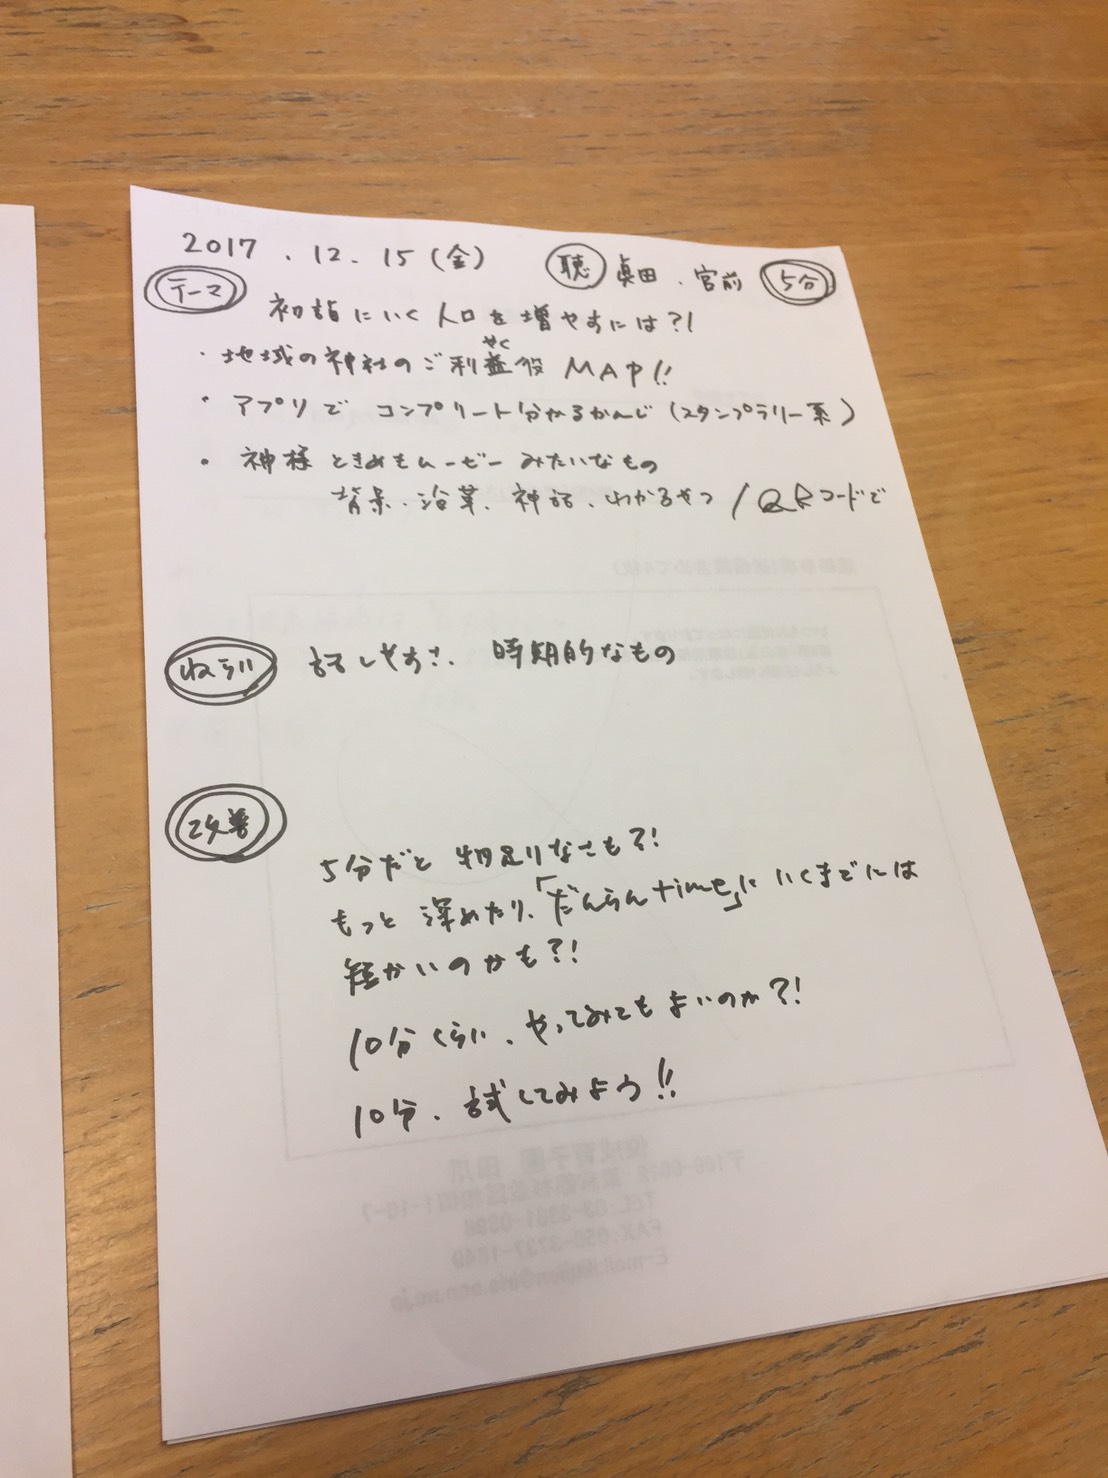 2017.12.15(金) 聴 眞田.宮前 5分
テーマ 初詣にいく人口を増やすには?!
・地域の神社のご利益役MAP!!
やく
・アプリでコンプリート分かるかんじ(スタンプラリー系)
・神様ときめもムービーみたいなもの
背景.沿革.神話.わかるやつ/QRコードで
ねらい 話しやすさ.時期的なもの
改善
5分だと物足りなさも?!
もっと深めたり、「だんらんtime」にいくまでには
短かいのかも?!
10分くらい、やってみてもよいのか?!
10分、試してみよう!!